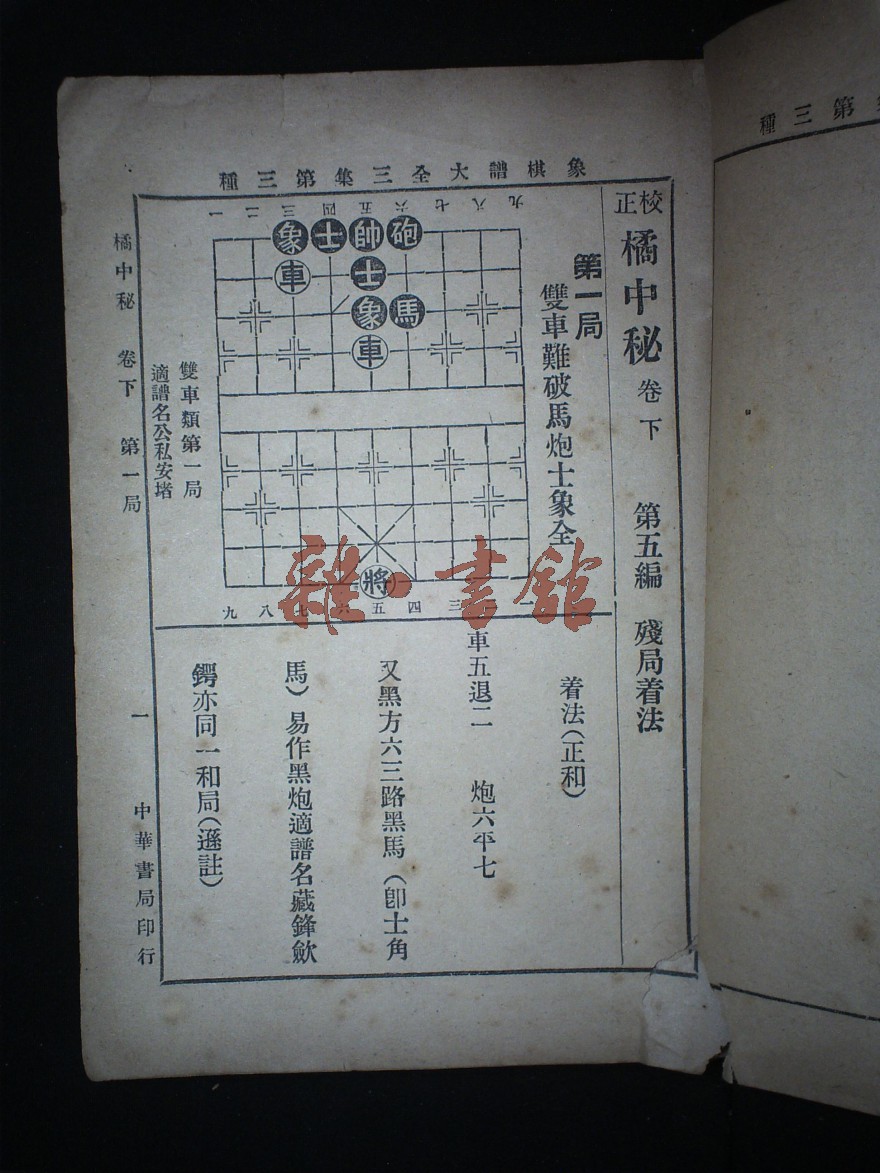 象棋譜大全三集第三種
第三種
校正橘中秘 卷下 第五編 殘局着法
第一局
雙車難破馬炮士象全
一二三四五六七八九
象士帥砲
車士
象馬
車
將
九八七六五四三
着法（正和）
車五退二 炮六平七
又黑方六三路黑馬（卽士角
馬）易作黑炮適譜名藏鋒歛
鍔亦同一和局（遜註）
雙車類第一局
適譜名公私安堵
橘中秘 卷下 第一局 一 中華書局印行
雜·書館